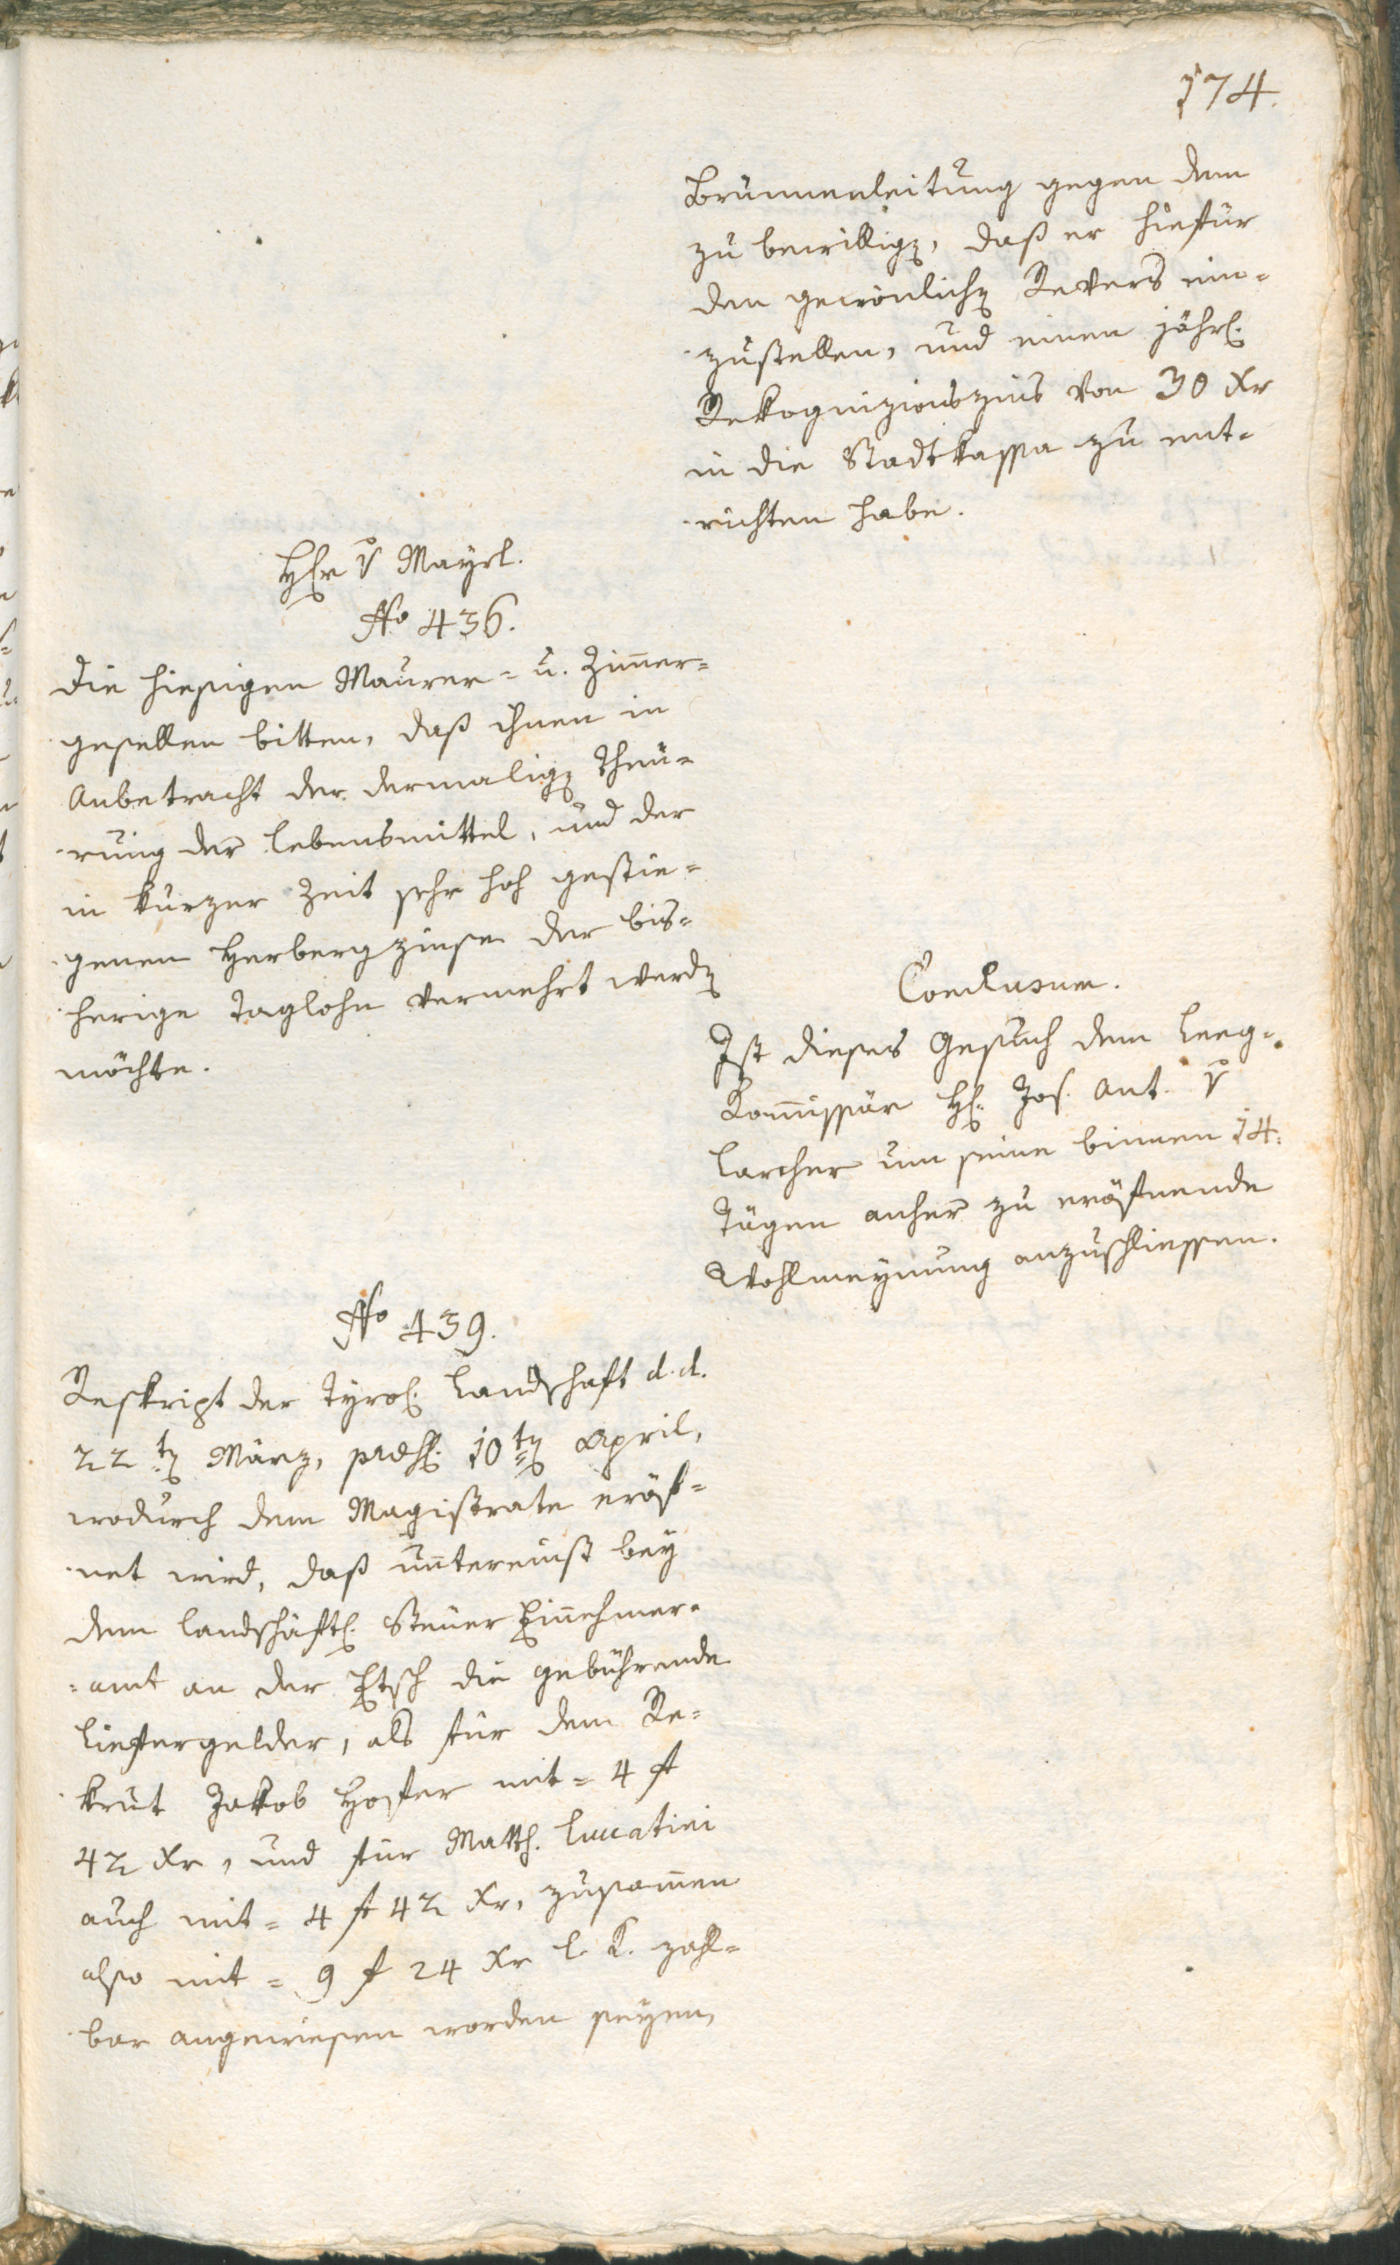 174.
Brunnenleitung gegen dem
zu bewillig, daß er hiefür
den gewönlich Revers ein-
zustellen, und einen jährl.
Rekognizionszins von 30 Xr
in die Stadtkassa zu ent-
richten habe.
Hr v Mayrl.
No 436.
Die hiesigen Maurer- u. Zimer-
gesellen bitten, daß ihnen in
Anbetracht der dermalig Theu-
rung der Lebensmittel, und der
in kurzer Zeit sehr hoh gestie-
genen Herbergzinse der bis-
herige Taglohn vermehrt werd
möchte.
Conclusum.
Ist dieses Gesuch dem Leeg-
Komissär H. Jos. Ant. v
Larcher um seine binnen 14.
Tägen anher zu eröfnende
Wohlmeynung anzuschliessen.
No 439.
Reskript der Tyrol. Landschaft d. d.
22 t März, 10 t April,
wodurch dem Magistrate eröf-
net wird, daß untereinst bey
dem landschäftl. Steuer Einehmer-
amt an der Etsch die gebührende
Liefergelder, als für dem Re-
krut Jakob Hofer mit = 4 f
42 Xr, und für Matth. Lucatini
auch mit = 4 f 42 Xr, zusamen
also mit = 9 f 24 Xr l. K. zahl-
bar angewiesen worden seyen,